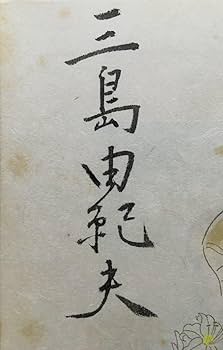 三島由紀夫